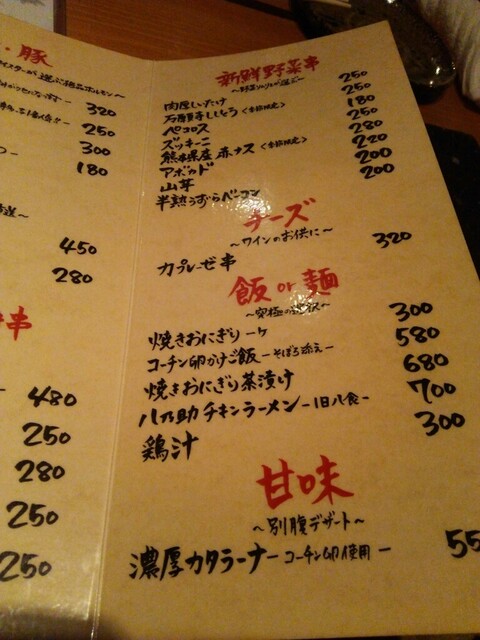 豚
320
250
300
180
450
280
串
480
250
280
250
250
新鮮野菜串
肉厚しいたけ 250
万願寺ししとう <季節限定> 250
ペコロス 180
ズッキーニ 250
熊本県産 赤ナス <季節限定> 280
アボカド 220
山芋 200
半熟うずらベーコン 200
チーズ
〜ワインのお供に〜
カプレーゼ串 320
飯 or 麺
〜究極の選択〜
焼きおにぎり一ヶ 300
コーチン卵かけご飯 −そぼろ添え− 580
焼きおにぎり茶漬け 680
八乃助チキンラーメン −1日八食− 700
鶏汁 300
甘味
〜別腹デザート〜
濃厚カタラーナ −コーチン卵使用− 55